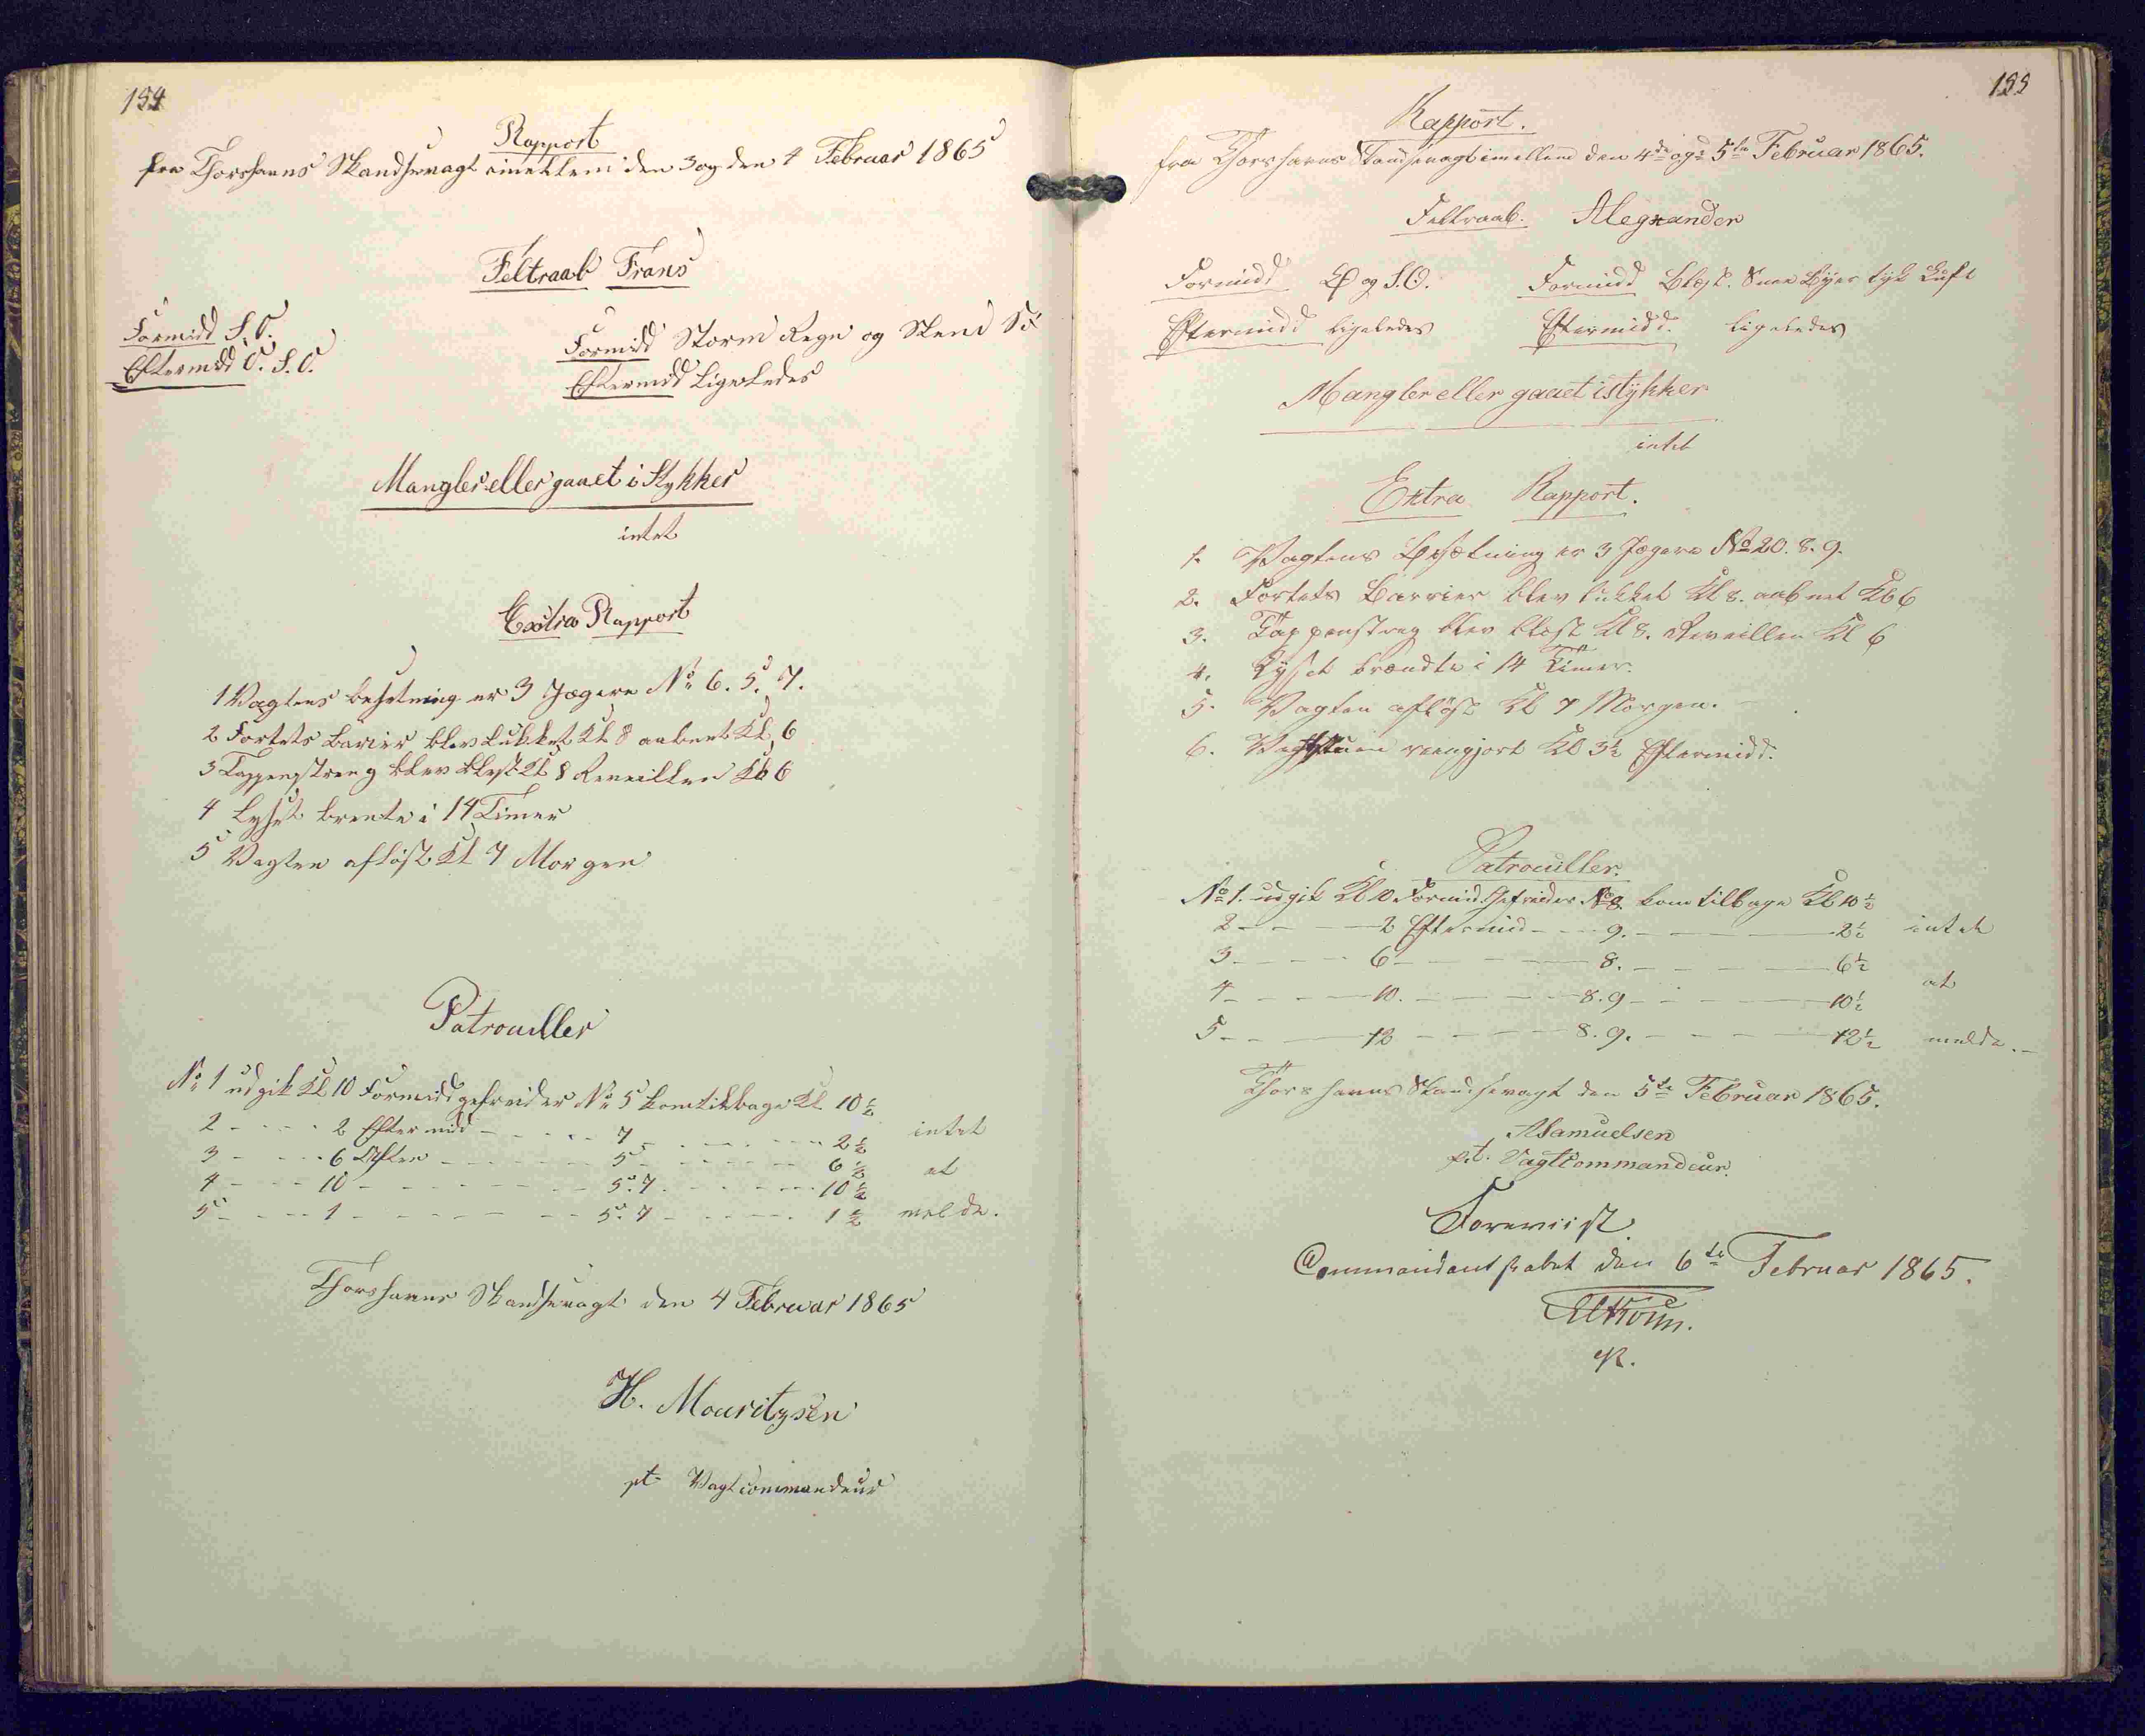 154
Rapport
fra Thorshavns Skandsevagt imellem den 3 og den 4 Februar 1865
Feltraab Frans
Formidd S.O.
Eftermidd O.S.O.
Formidd Storm Regn og Stend
Eftermidd Ligeledes
Mangler eller gaaet i Stykker
intet
Extra Rapport
1 Vagtens besetning er 3 Jægere No 6. 5. 7.
2 Fortets Barier blev lukket Kl 8 aabnet Kl 6
3 Tappenstreng blev blest Kl 8 Reveillen Kl 6
4 Lyset brente i 14 Timer
5 Vagten afløst Kl 7 Morgen
Patrouller
No 1 udgik Kl 10 Formidd gefreider No 5 kom tilbage Kl 10½
2 - - - 2 Eftermid - - - 7 - - - 2½ intet
3 - - - 6 Aften - - - 5 - - - 6½ at
4 - - - 10 - - - 5.7 - - - 10½
5 - - - 1 - - - 5.7 - - - 1½ melde.
Thorshavns Skandsevagt den 4 Februar 1865
H. Mouritzsen
pt Vagtcommandeur
155
Rapport.
fra Thorshavns Skandsevagt imellem den 4de og 5te Februar 1865.
Feltraab. Alegxander
Formidd Ø og S.O. Formidd Blest. Snee Byer tyk Luft
Eftermidd ligeledes Eftermidd. ligeledes
Mangler eller gaaet istykker
intet
Extra Rapport.
1. Vagtens Besætning er 3 Jægere No 20. 8. 9.
2. Fortets Barrier blev lukket Kl 8. aabnet Kl 6
3. Tappenstreg blev blæst Kl 8. Reveillen Kl 6
4. Lyset brændte i 14 Timer.
5. Vagten afløst Kl 7 Morgen.
6. Vagtstuen reengjort Kl 3½ Eftermidd.
Patrouiller.
No 1. udgik Kl 10 Formid. Gefreider No 8. kom tilbage Kl 10½
2 - - - 2 Eftermid - - - 9. - - - 2½ intet
3 - - - 6 - - - 8. - - - 6½
4 - - - 10. - - - 8.9 - - - 10½ at
5 - - - 12 - - - 8.9. - - - 12½ melde.
Thorshavns Skandsevagt den 5te Februar 1865.
Samuelsen
p.t. Vagtcommandeur.
Foreviist.
Commandantskabet den 6te Februar 1865.